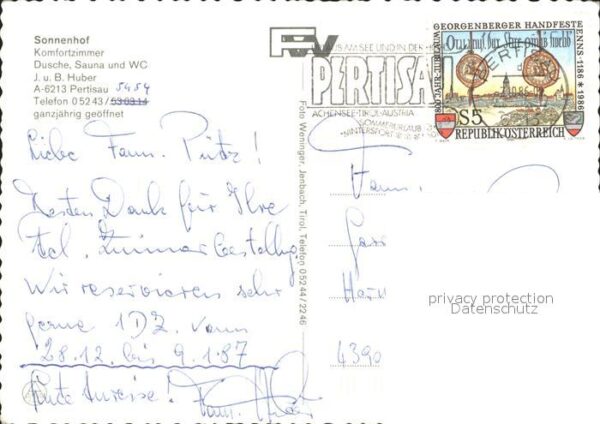 Sonnenhof
Komfortzimmer
Dusche, Sauna und WC
J. u. B. Huber
A-6213 Pertisau 5454
Telefon 05243/
ganzjährig geöffnet
PERTISA
ACHENSEE-TIROL-AUSTRIA
SOMMERURLAUB
WINTERSPORT
GEORGENBERGER HANDFESTE
800 JAHR-JUBILÄUM
ENNS·1186 * 1986
S5
REPUBLIK ÖSTERREICH
Foto Weninger, Jenbach, Tirol, Telefon 05244/2246
Liebe Fam.
Besten Dank für Ihre
tel. Zimmerbestellg.
Wir reservieren sehr
gerne 1DZ. vom
28.12. bis 9.1.87
Gute Anreise!
Fam.
Fam.
4390
privacy protection
Datenschutz